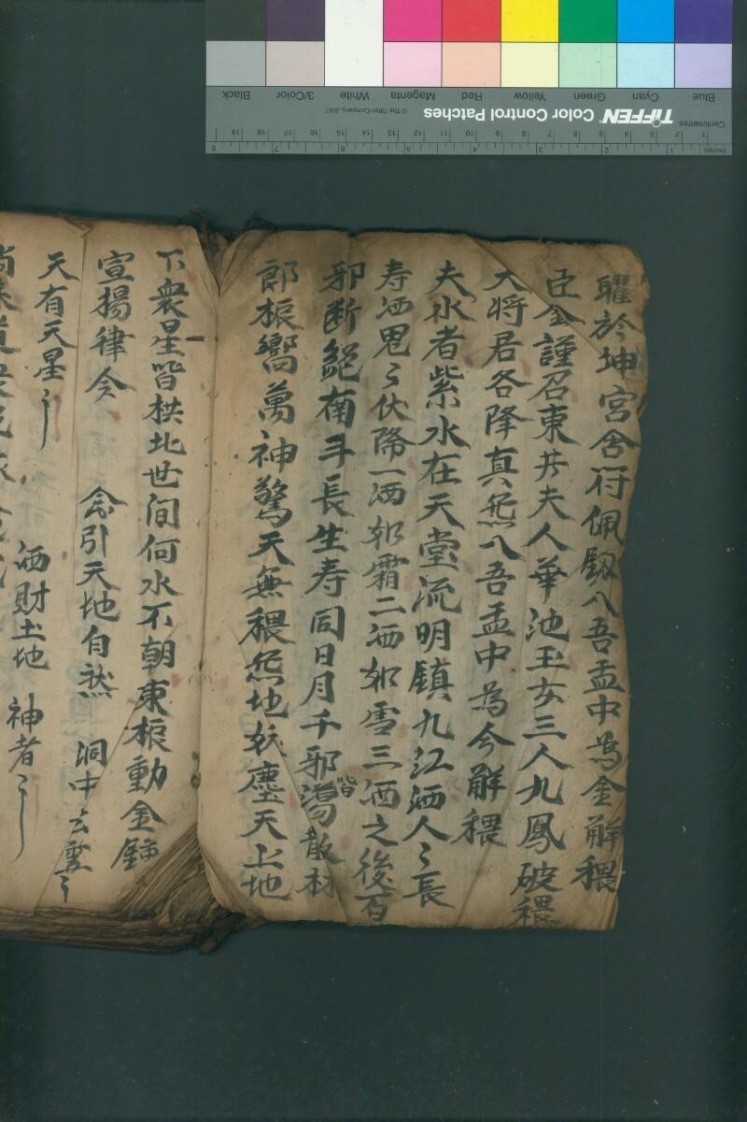 耀於坤宮含符佩劔入吾盂中為金解穢
臣今謹召東井夫人華池玉女三人九鳳破穢
大將君各降真炁入吾盂中為今解穢
夫水者紫水在天堂流明鎮九江洒人〻長
寿洒鬼〻伏降一洒如霜二洒如雪三洒之後百
邪断䋎南斗長生寿同日月千邪皆蕩散林
郎振嚮萬神驚天無穢炁地妖塵天上地
下衆星皆拱北世间何水不朝東振動金鈡
宣揚律令 念引天地自然 洞中云云〻
天有天星〻 洒財土地 神者〻
Black 3/Color White Magenta Red Yellow Green Cyan Blue
TIFFEN Color Control Patches
© The Tiffen Company, 2007
Centimetres 1 2 3 4 5 6 7 8 9 10 11 12 13 14 15 16 17 18 19
Inches 1 2 3 4 5 6 7 8